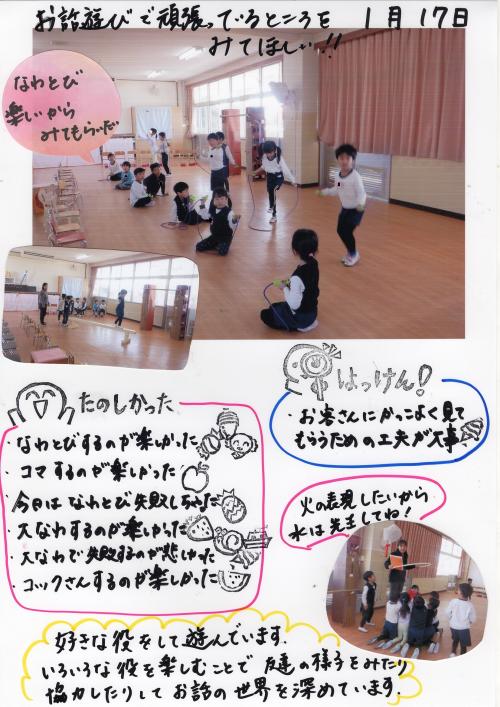 お話遊びで頑張っているところを 1月17日
みてほしい!!
なわとび
楽しいから
みてもらいたい
たのしかった
・なわとびするのが楽しかった
・コマするのが楽しかった
・今日はなわとび失敗しちゃった
・大なわするのが楽しかった
・大なわで失敗するのが悲しかった
・コックさんするのが楽しかった
はっけん!
・お客さんにかっこよく見て
もらうための工夫が大事
火の表現したいから
水は先生してね!
好きな役をして遊んでいます。
いろいろな役を楽しむことで友達の様子をみたり
協力したりしてお話の世界を深めています。